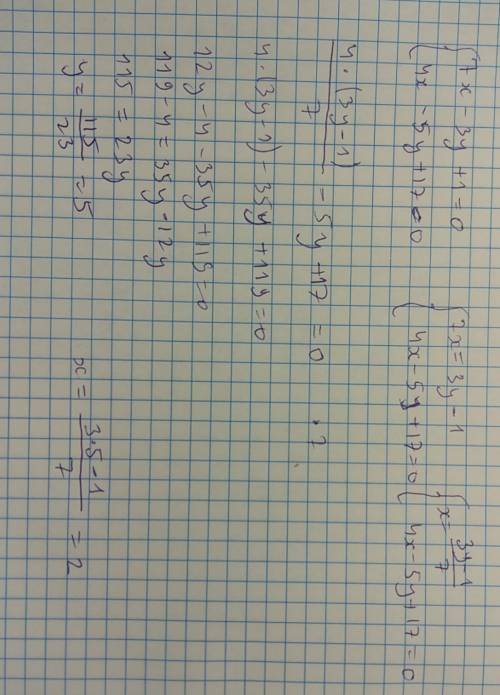 { 7x - 3y + 1 = 0   { 7x = 3y - 1   { x = (3y - 1)/7
{ 4x - 5y + 17 = 0   { 4x - 5y + 17 = 0   { 4x - 5y + 17 = 0
4·(3y - 1)/7 - 5y + 17 = 0   ·7
4·(3y - 1) - 35y + 119 = 0
12y - 4 - 35y + 119 = 0
119 - 4 = 35y - 12y
115 = 23y
y = 115/23 = 5   x = (3·5 - 1)/7 = 2